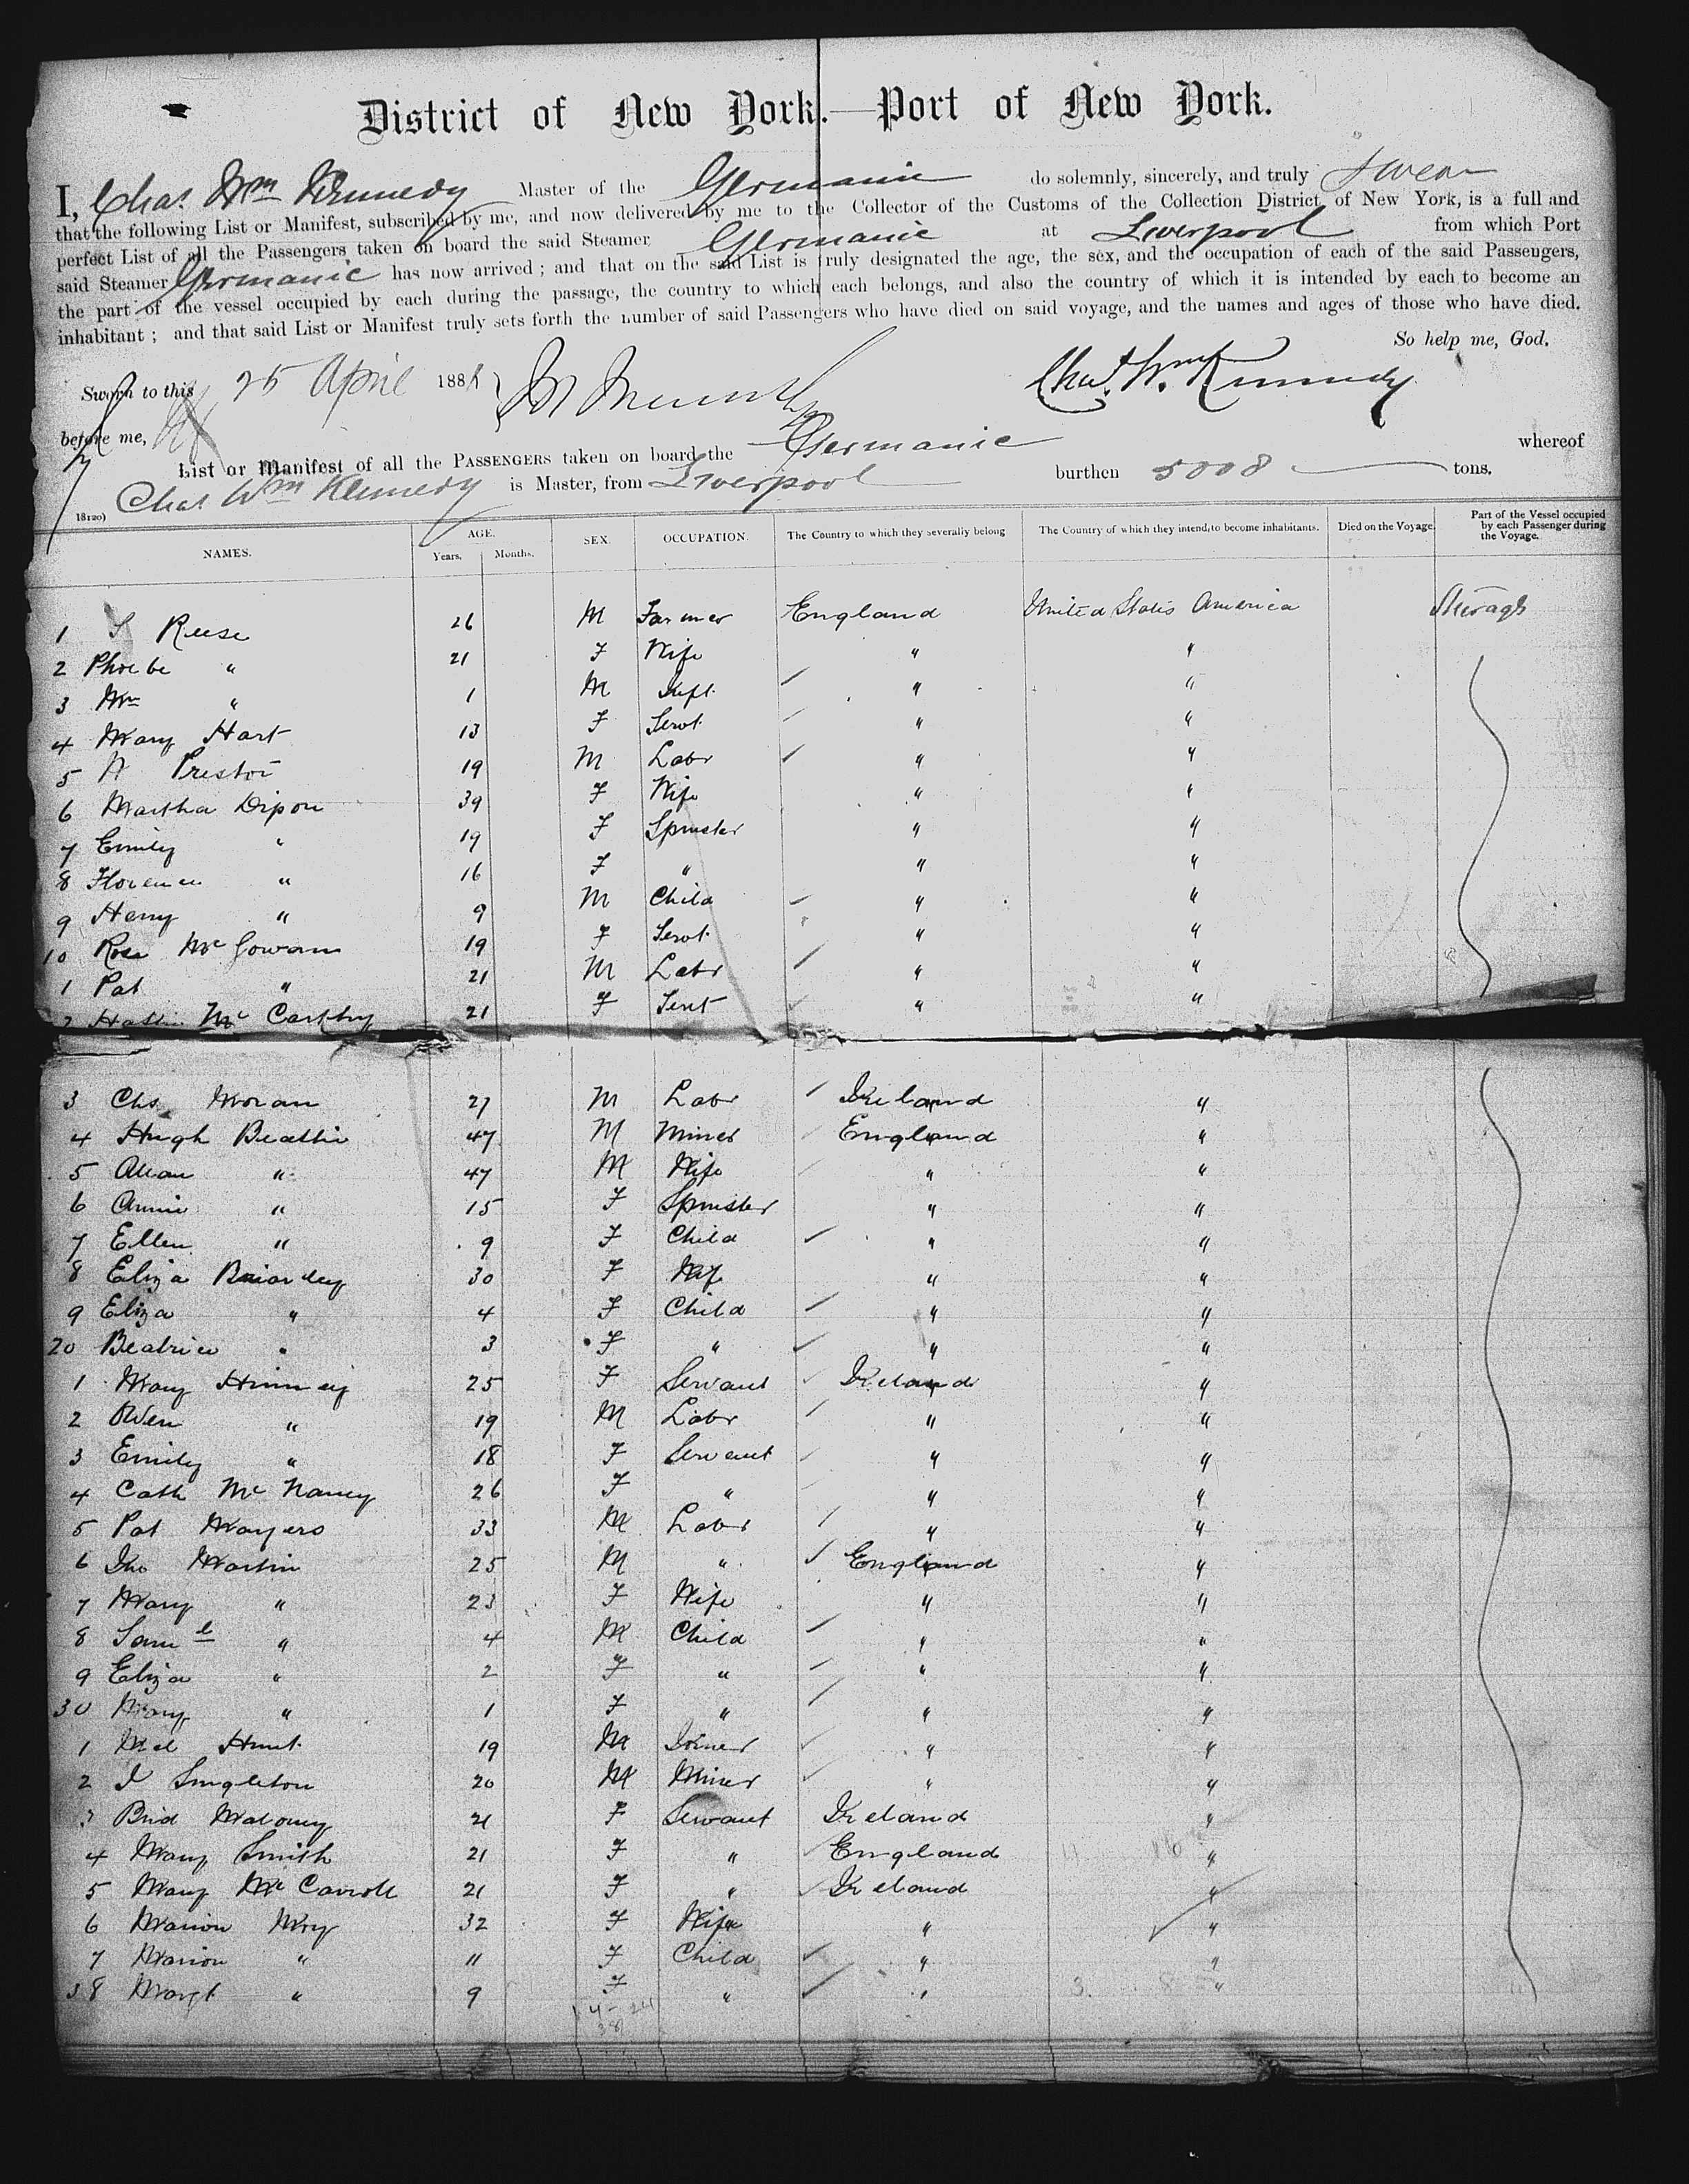 District of New York.—Port of New York.
I, Chas. Wm Kennedy Master of the Germanic do solemnly, sincerely, and truly swear
that the following List or Manifest, subscribed by me, and now delivered by me to the Collector of the Customs of the Collection District of New York, is a full and
perfect List of all the Passengers taken on board the said Steamer Germanic at Liverpool from which Port
said Steamer Germanic has now arrived; and that on the said List is truly designated the age, the sex, and the occupation of each of the said Passengers,
the part of the vessel occupied by each during the passage, the country to which each belongs, and also the country of which it is intended by each to become an
inhabitant; and that said List or Manifest truly sets forth the number of said Passengers who have died on said voyage, and the names and ages of those who have died.
So help me, God.
Sworn to this 25 April 188 Chas. Wm Kennedy
before me,
List or Manifest of all the PASSENGERS taken on board the Germanic whereof
Chas Wm Kennedy is Master, from Liverpool burthen 5008 tons.
NAMES. AGE. Years. Months. SEX. OCCUPATION. The Country to which they severally belong The Country of which they intend to become inhabitants. Died on the Voyage. Part of the Vessel occupied by each Passenger during the Voyage.
1 S Reese 26 M Farmer England United States America Steerage
2 Phoebe " 21 F Wife " "
3 Wm " 1 M Inft. " "
4 Mary Hart 13 F Servt. " "
5 A Preston 19 M Labr " "
6 Martha Dixon 39 F Wife " "
7 Emily " 19 F Spinster " "
8 Florence " 16 F " " "
9 Henry " 9 M Child " "
10 Rose McGowan 19 F Servt. " "
1 Pat " 21 M Labr " "
2 McCarthy 21 F Servt " "
3 Chs Moran 27 M Labr Ireland "
4 Hugh Beattie 47 M Miner England "
5 " 47 M Wife " "
6 Annie " 15 F Spinster " "
7 Ellen " 9 F Child " "
8 Eliza 30 F Wife " "
9 Eliza " 4 F Child " "
20 Beatrice " 3 F " " "
1 Mary 25 F Servant Ireland "
2 Owen " 19 M Labr " "
3 Emily " 18 F Servant " "
4 Cath 26 F " " "
5 Pat Mayers 33 M Labr " "
6 Jno Martin 25 M " England "
7 Mary " 23 F Wife " "
8 Saml " 4 M Child " "
9 Eliza " 2 F " " "
30 Mary " 1 F " " "
1 Hunt 19 M Joiner " "
2 J Singleton 20 M Miner " "
3 Brid Maloney 21 F Servant Ireland "
4 Mary Smith 21 F " England "
5 Mary McCarroll 21 F " Ireland "
6 Marion 32 F Wife " "
7 Marion " 11 F Child " "
38 Margt " 9 F " " "